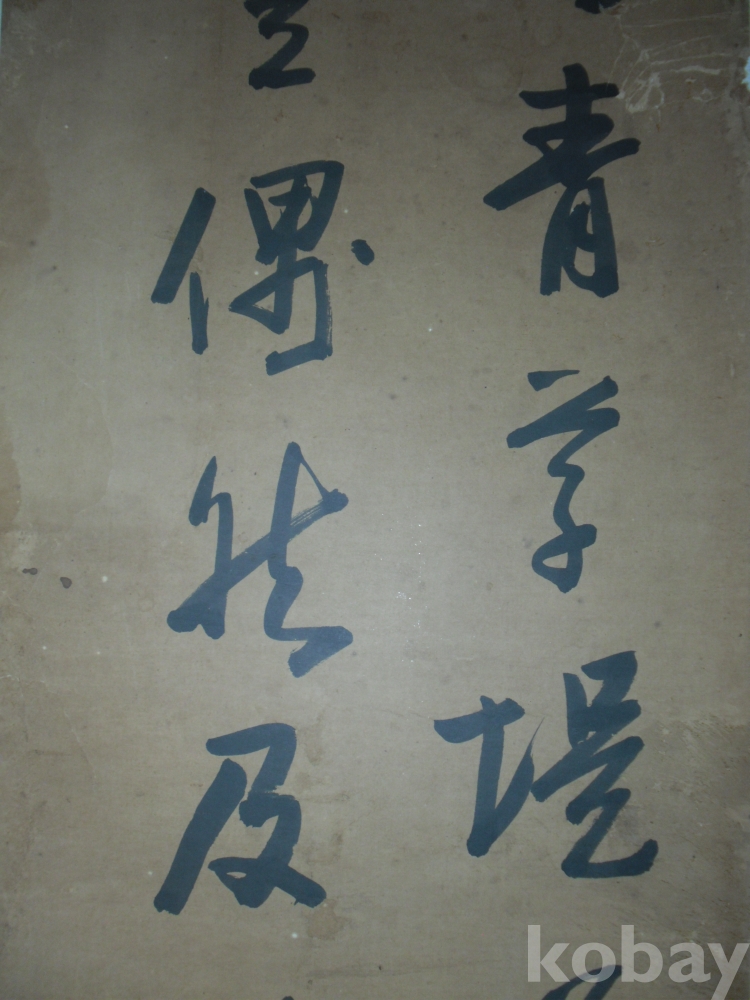 青草堤
偶然及
kobay